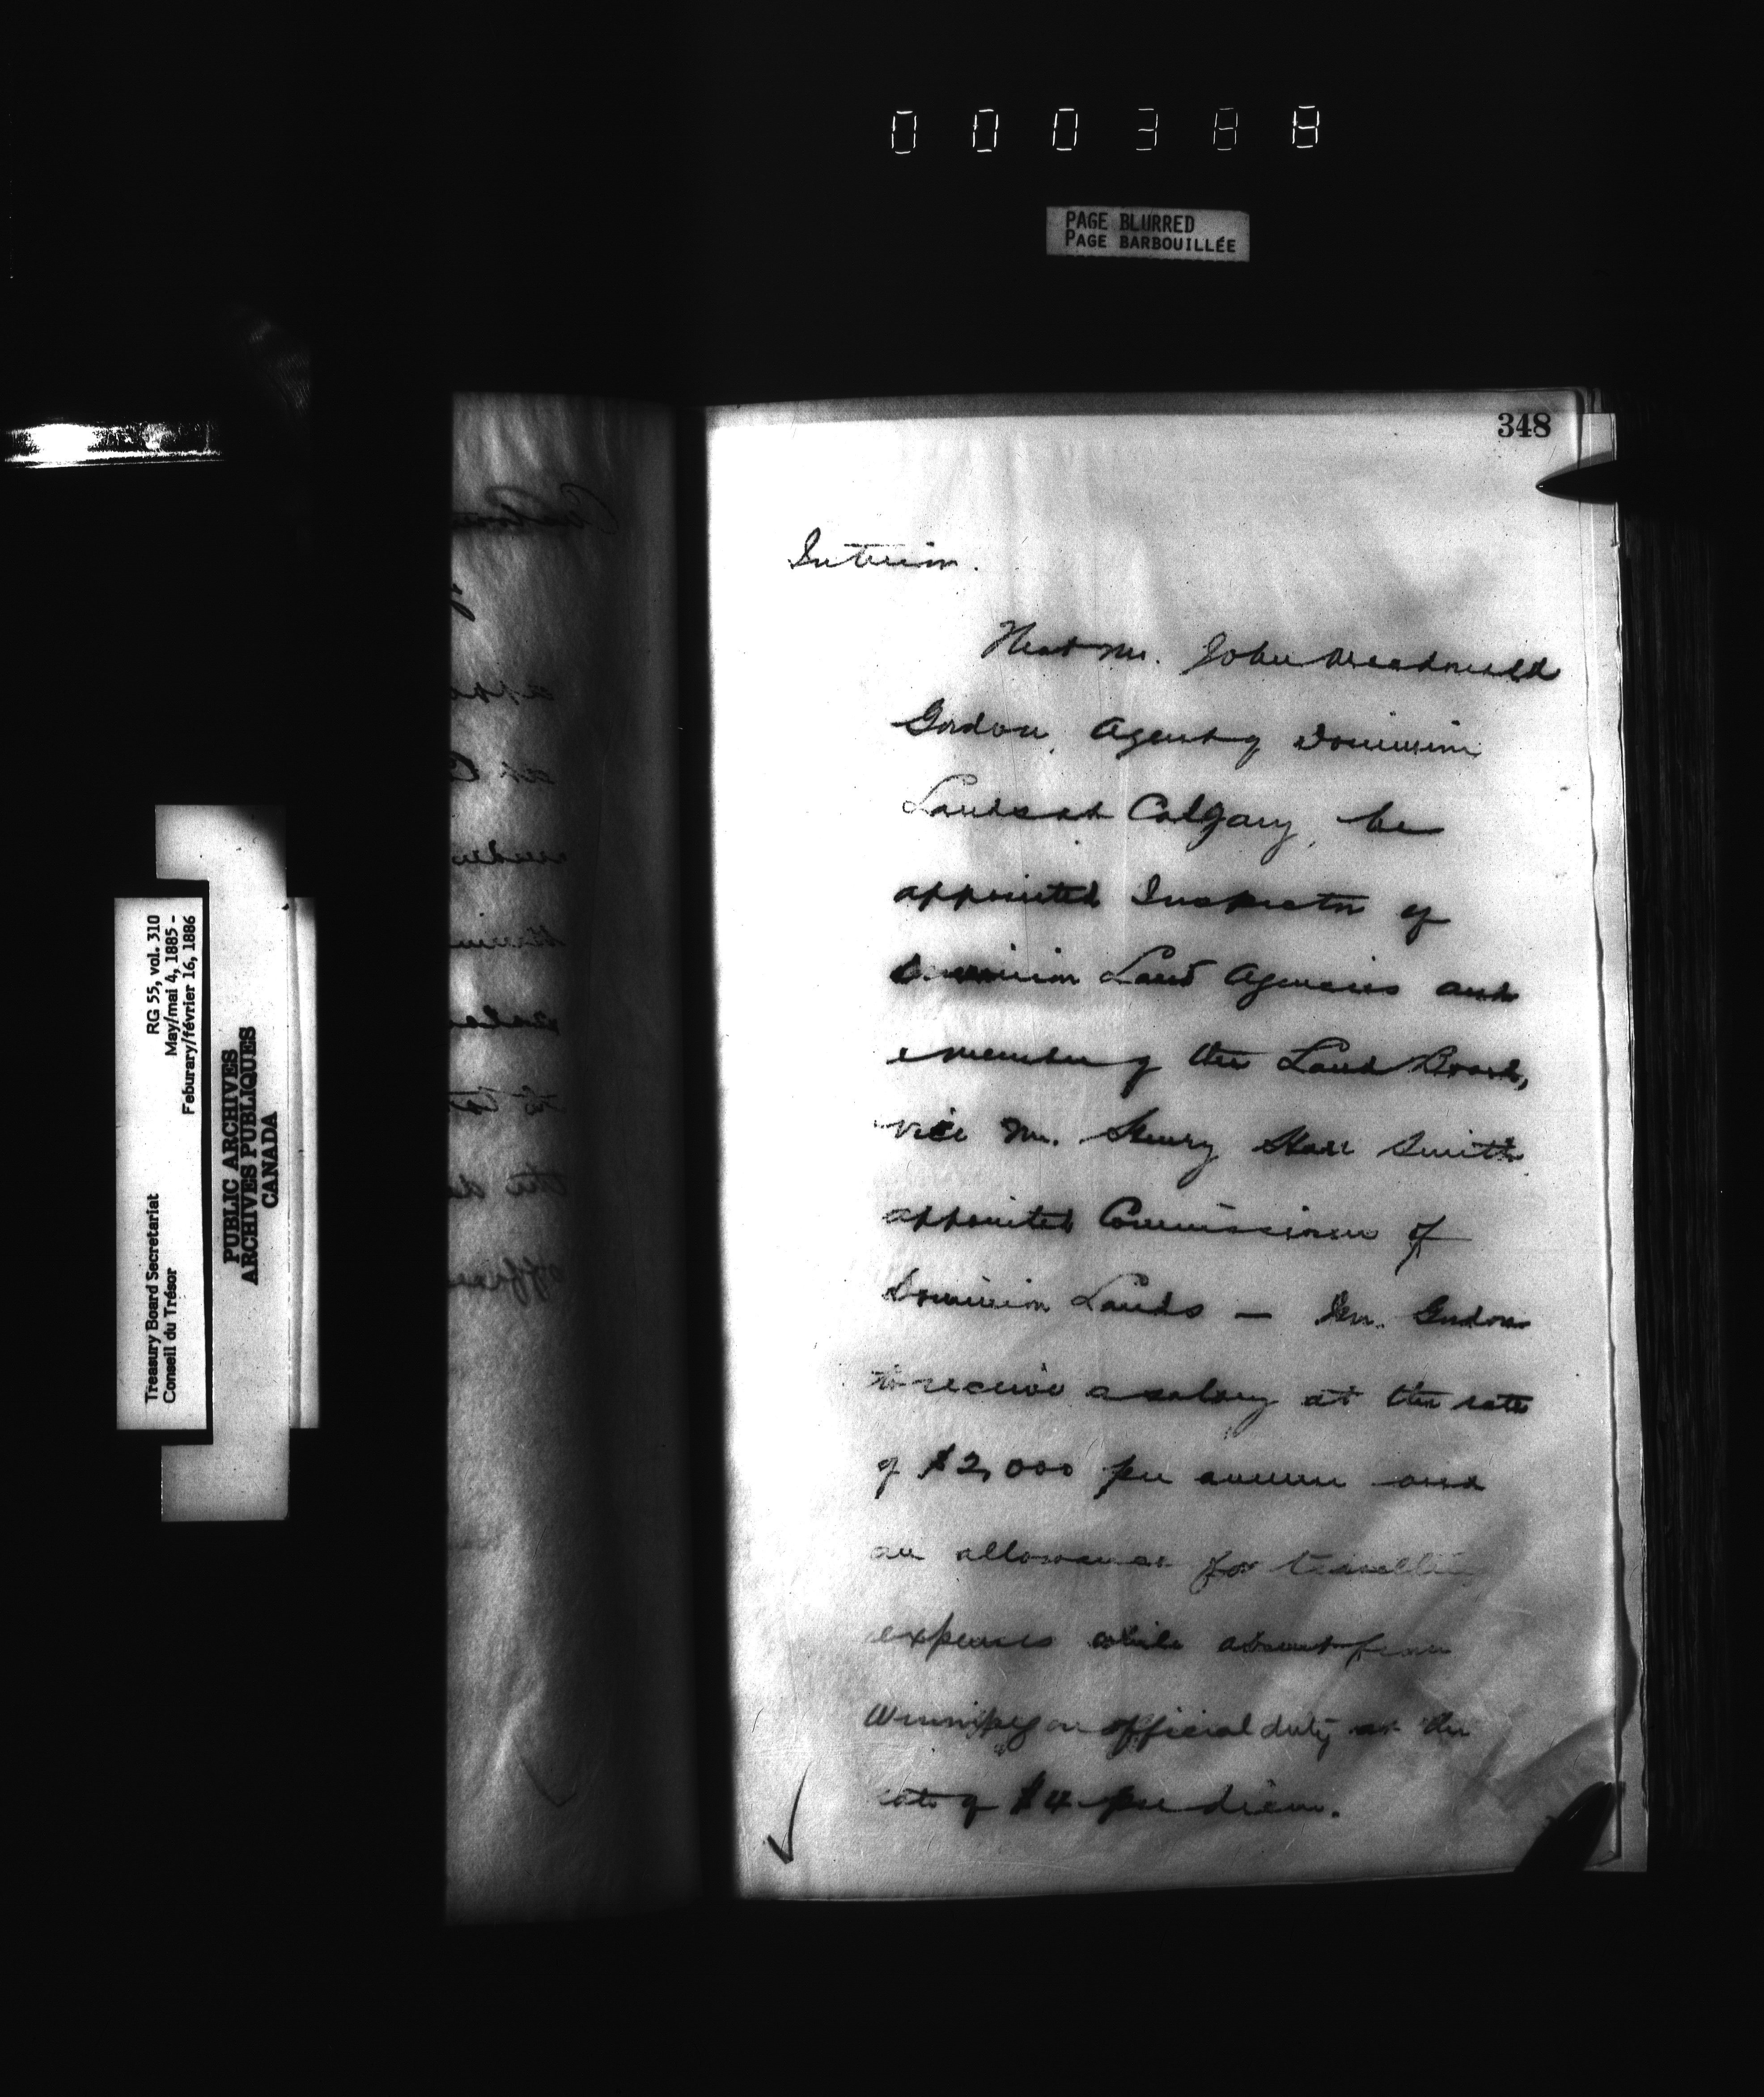 000388
PAGE BLURRED
PAGE BARBOUILLÉE
348
Interior.
That Mr. John Macdonald
Gordon, Agent of Dominion
Lands at Calgary, be
appointed Inspector of
Dominion Land Agencies and
a member of the Land Board,
vice Mr. Henry Hall Smith
appointed Commissioner of
Dominion Lands — Mr. Gordon
to receive a salary at the rate
of $2,000 per annum and
an allowance for travelling
expenses while absent from
Winnipeg on official duty at the
rate of $4 per diem.
Treasury Board Secretariat RG 55, vol. 310
Conseil du Trésor May/mai 4, 1885 -
Feburary/février 16, 1886
PUBLIC ARCHIVES
ARCHIVES PUBLIQUES
CANADA